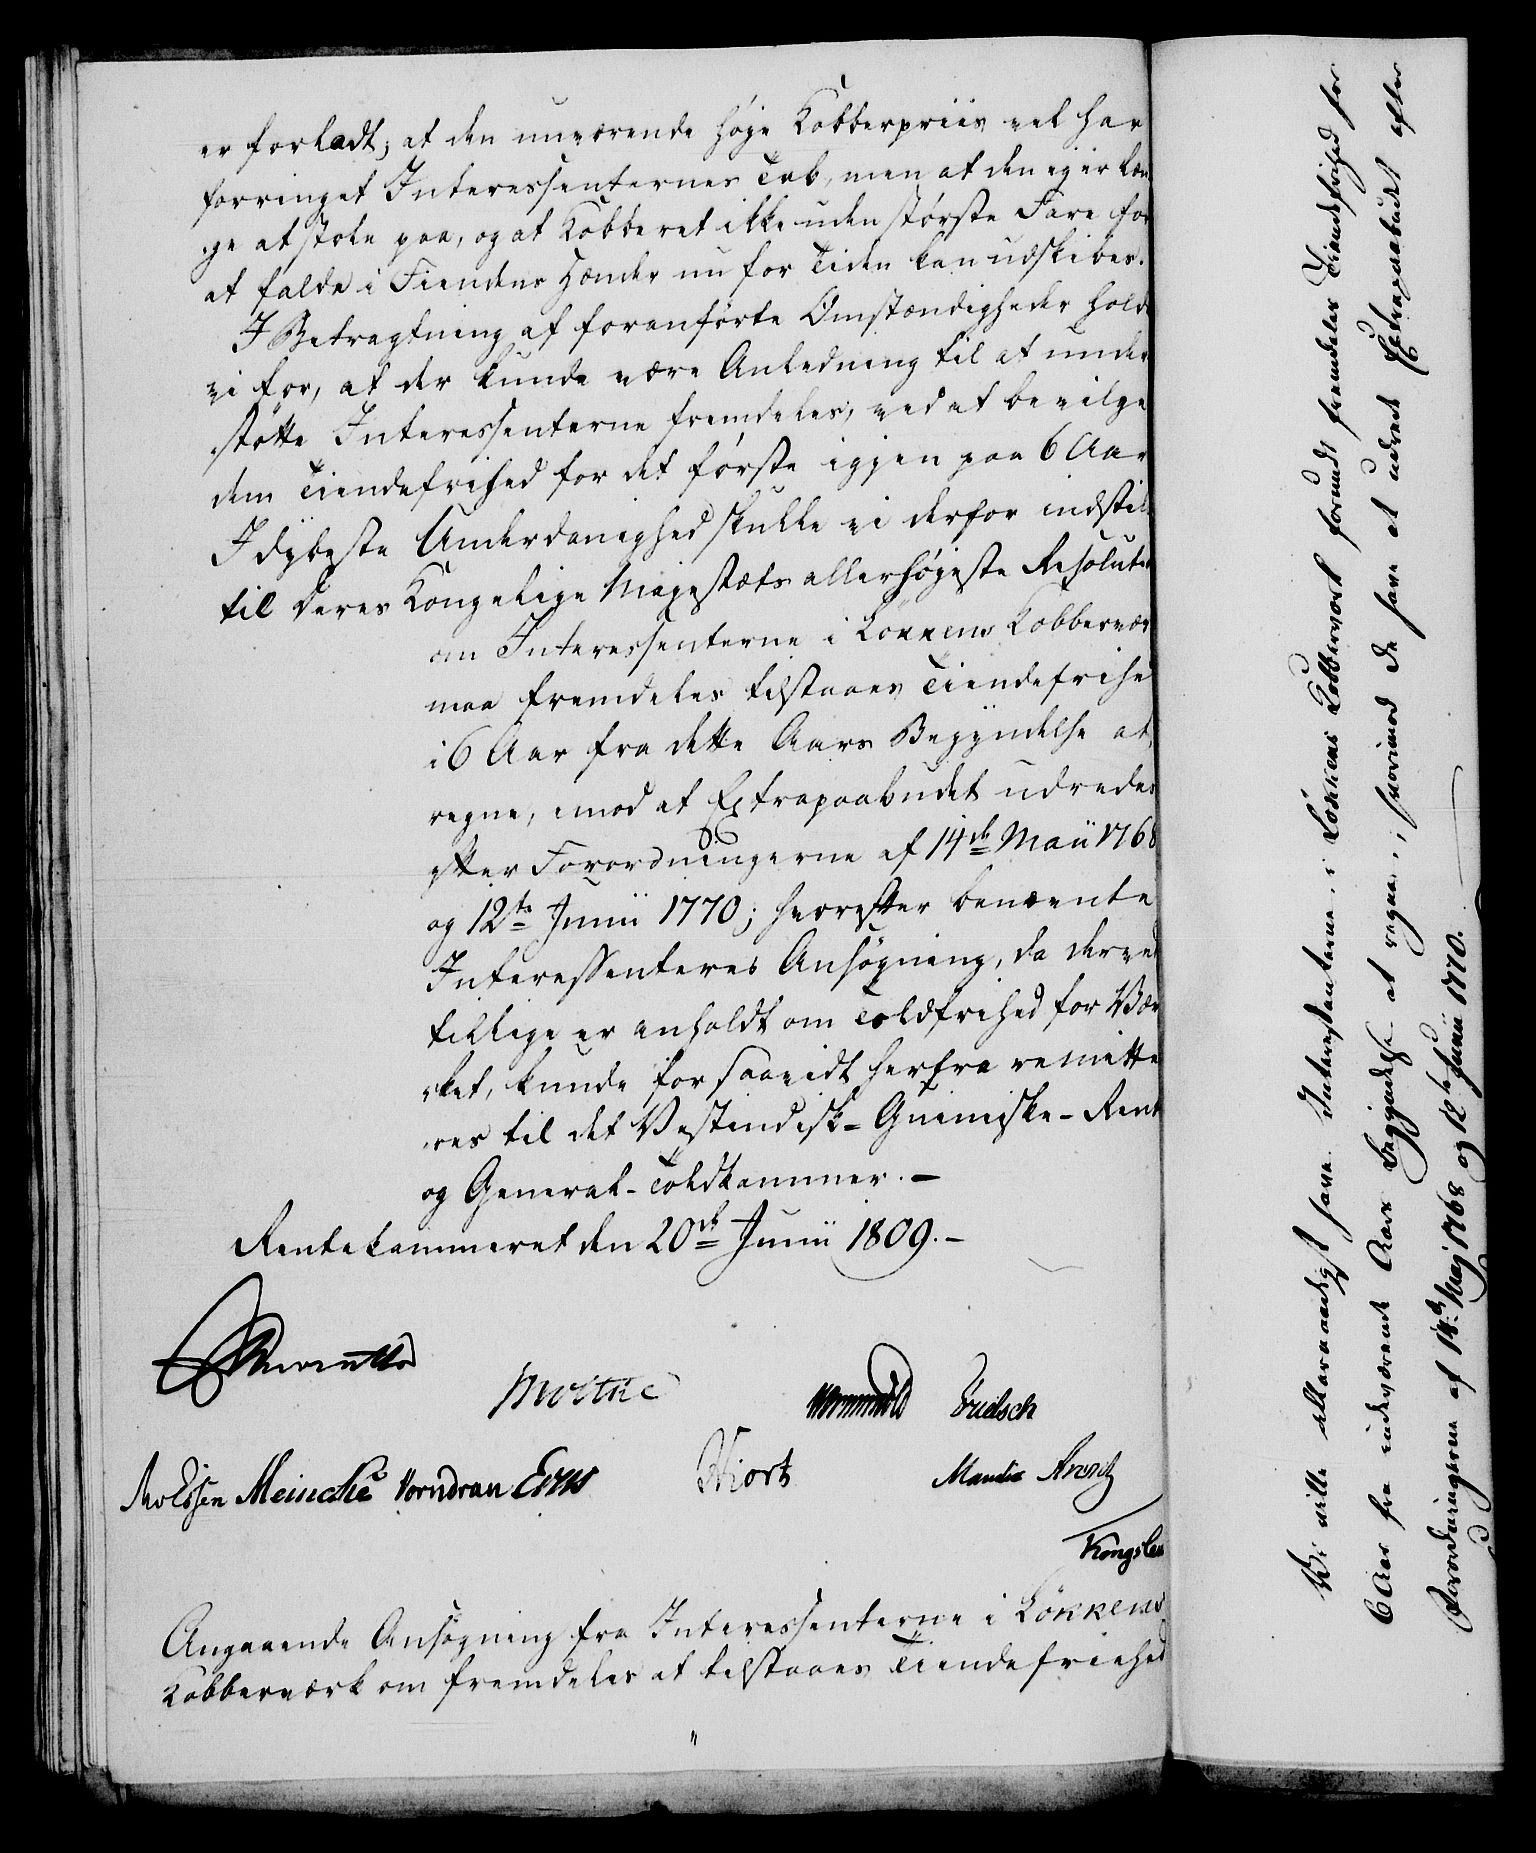 er forladt; at den nuværende høye Kobberpriis vel har
forringet Interessenternes Tab, men at den ej er læn
ge at stole paa, og at Kobberet ikke uden største Fare for
at falde i Fiendens Hænder nu for Tiden kan udskibes.
I Betragtning af foranførte Omstændigheder holde
vi for, at der kunde være Anledning til at under
støtte Interessenterne fremdeles, ved at bevilge
dem Tiendefrihed for det første igjen paa 6 Aar
I dybeste Underdanighed skulle vi derfor indstil
til Deres Kongelige Majestæts allerhøjeste Resolut
om Interessenterne i Løkkens Kobbervær
maa fremdeles tilstaaes Tiendefrihe
i 6 Aar fra dette Aars Begyndelse at
regne, imod at Extrapaabudet udredes
efter Forordningerne af 14de Maii 1768
og 12te Junii 1770; hvorefter benævnte
Interessenteres Ansøgning, da derved
tillige er anholdt om Toldfrihed for Vær
ket, kunde forsaavidt herfra remitte
res til det Vestindisk-Guineiske-Rent
og General-Toldkammer. —
Rentekammeret den 20de Junii 1809. —
Moltke
Wormskiold
Meincke Vorndran
Hiort
Kongslev
Angaaende Ansøgning fra Interessenterne i Løkkens
Kobberværk om fremdeles at tilstaaes Tiendefriehed
Vi ville allernaadigst have Interessenterne i Løkkens Kobberværk forundt fremdeles Tiendefrihed for
6 Aar fra indeværende Aars Begyndelse at regne, hvorimod de have at udrede Extrapaabudet efter
Forordningerne af 14de Maj 1768 og 12te Junii 1770.